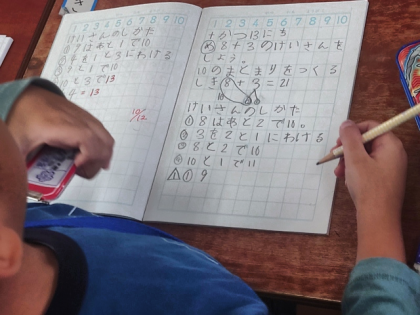 1 2 3 4 5 6 7 8 9 10
けいさんのしかた
9はあと1で10
4を1と3にわける
9と1で10
10と3で13
4=13
10/12
1 2 3 4 5 6 7 8 9 10
十がつ13にち
8+3のけいさんを
しよう。
10のまとまりをつくる
しき8+3=21
10
けいさんのしかた
①8はあと2で10。
②3を2と1にわける
③8と2で10
④10と1で11
①9